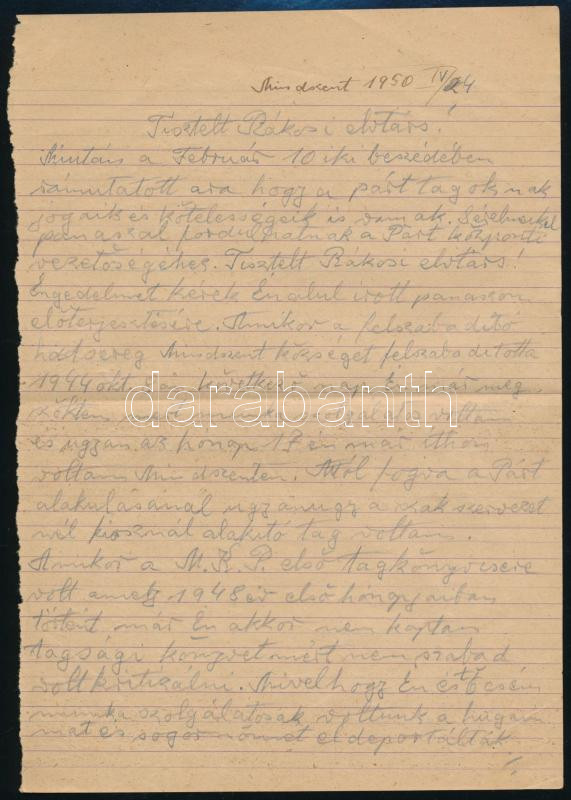 Mindszent 1950 IV/24
Tisztelt Rákosi elvtárs!
Miután a Február 10 iki beszédében
rámutatott ara hogy a párt tagoknak
jogaik és kötelességeik is vanak. Sérelmeikel
panaszal fordulhatnak a Párt központi
vezetőségehez. Tisztelt Rákosi elvtárs!
Engedelmet kérek Én alul irott panaszom
előterjesztésére. Amikor a felszabaditó
hadsereg Mindszent községet felszabaditotta
1944 okt. következő nap Én már meg
szöktem mert munka szolgálatos voltam
és ugyan az hónap 17 én már itthon
voltam Mindszenten. Attól fogva a Párt
alakulásánál ugyanugy a szak szervezet
nél alakitó tag voltam.
Amikor a M.K.P. első tagkönyvcsere
volt amely 1948 év első hónapjaiban
történt már Én akkor nem kaptam
tagsági könyvet mért nem szabad
volt kritizálni. Mivelhogy Én és öcsém
munka szolgálatosak voltunk a hugaim
mat és sogor nőmet el deportálták
darabanth